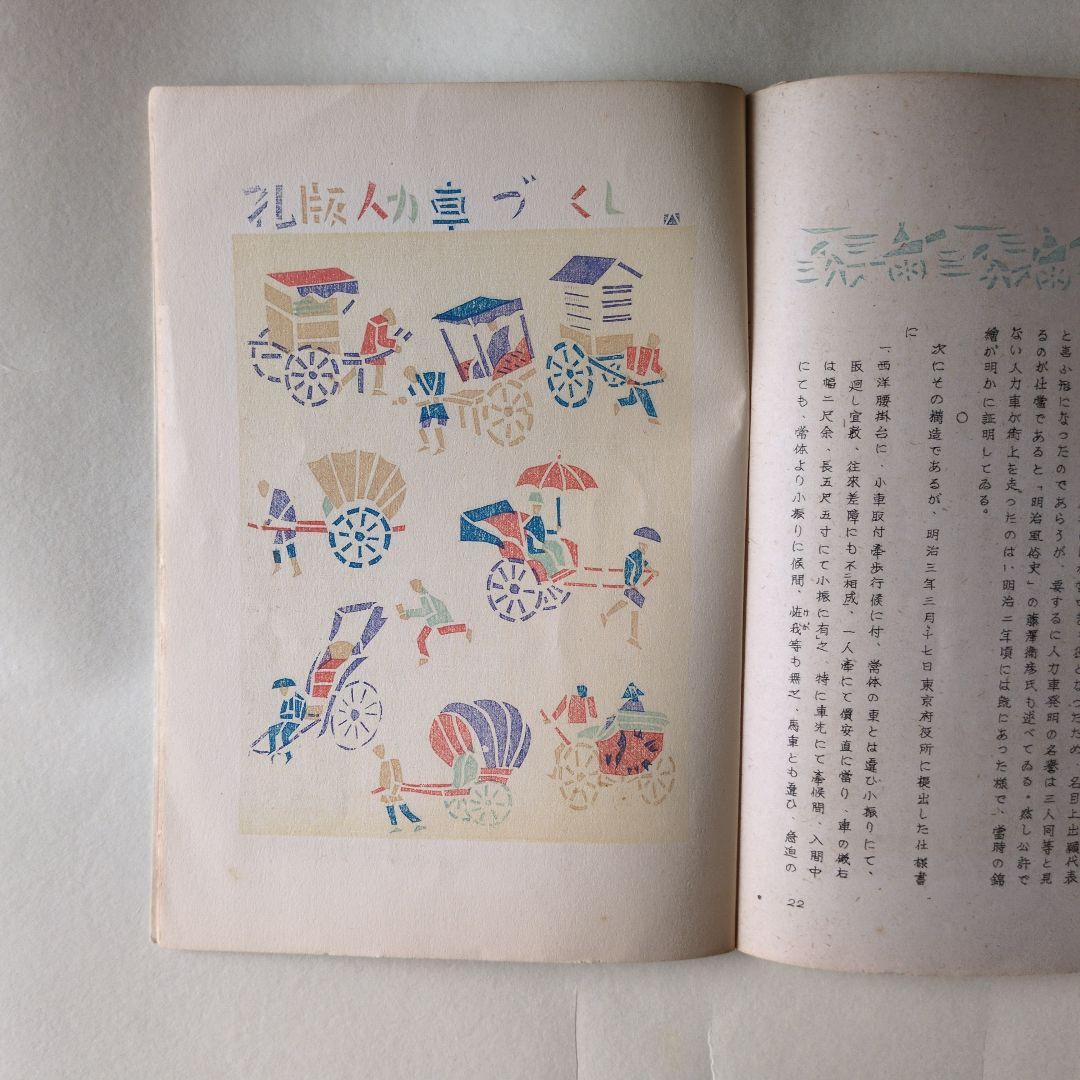 孔版人力車づくし
と言ふ形になつたのであらうが、要するに人力車発明の名誉は三人同等と見
るのが仕当であると「明治風俗史」の藤澤衛彦氏も述べてゐる。然し公許で
ない人力車が街上を走つたのはい明治二年頃には既にあつた様で、當時の錦
繪が明かに証明してゐる。
〇
次にその構造であるが、明治三年三月十七日東京府役所に提出した仕様書
に
一、西洋腰掛台に、小車取付牽歩行候に付、常体の車とは違ひ小振りにて、
取廻し宜敷、往來差障にも不相成、一人牽にて價安直に當り、車の嵌右
は幅二尺余、長五尺五寸にて小振に有之、特に車先にて牽候間、入間中
にても、常体より小振りに候間、怪我等も無之、馬車とも違ひ、急迫の
22